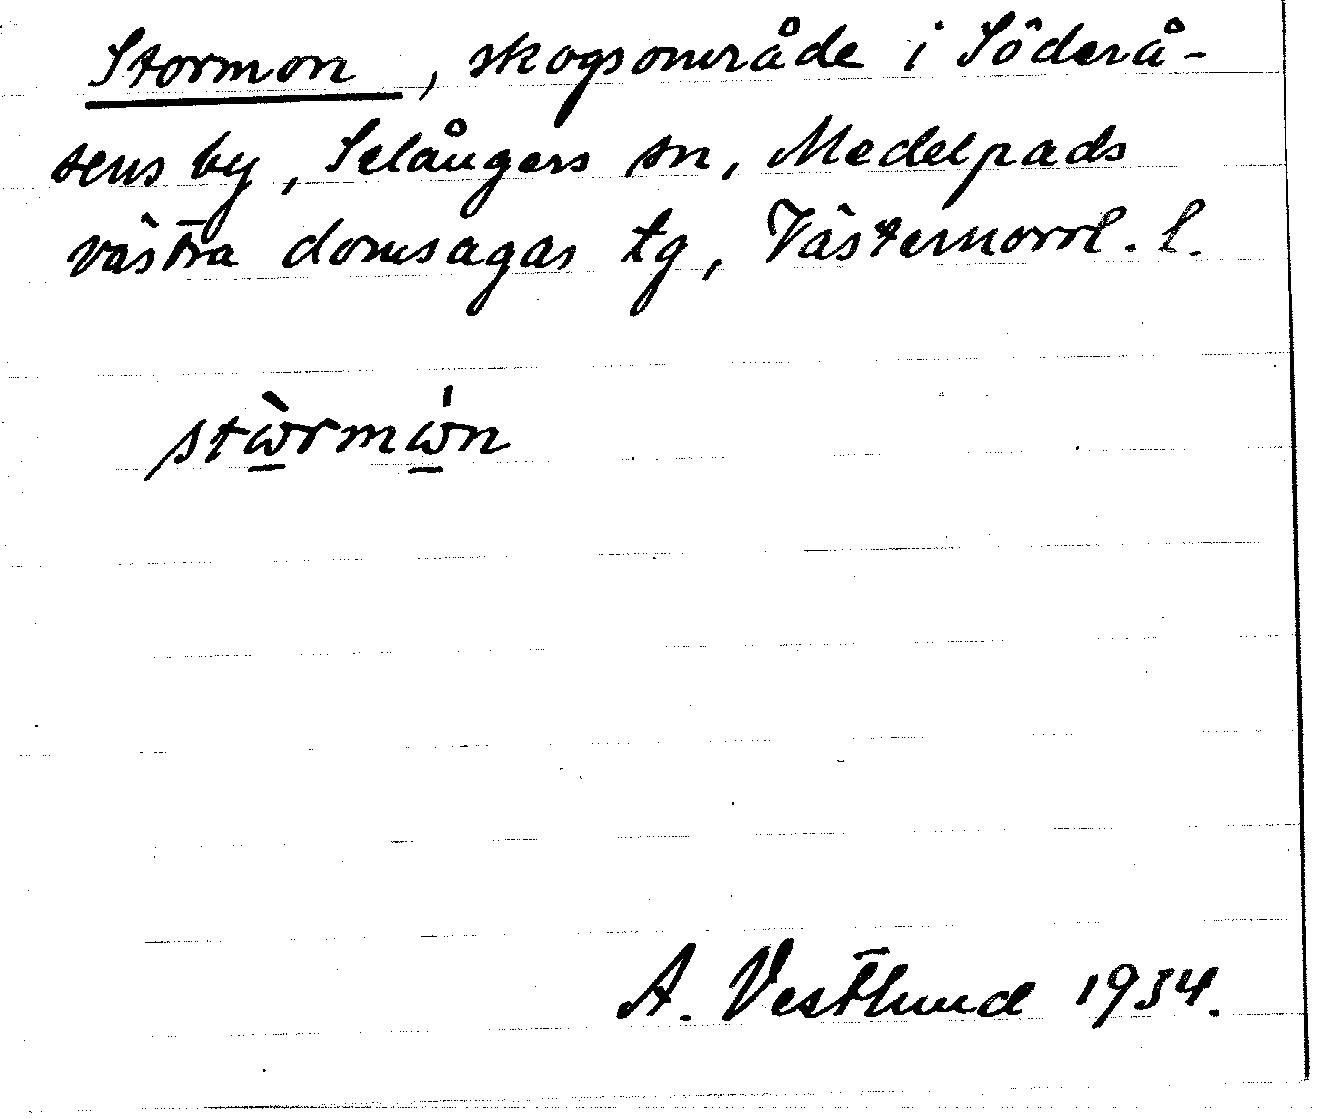 Stormon, skogsområde i Söderå-
sens by, Selångers sn, Medelpads
västra domsagas tg, Västernorrl. l.
stὼ̲rmώ̲n
A. Vestlund 1934.